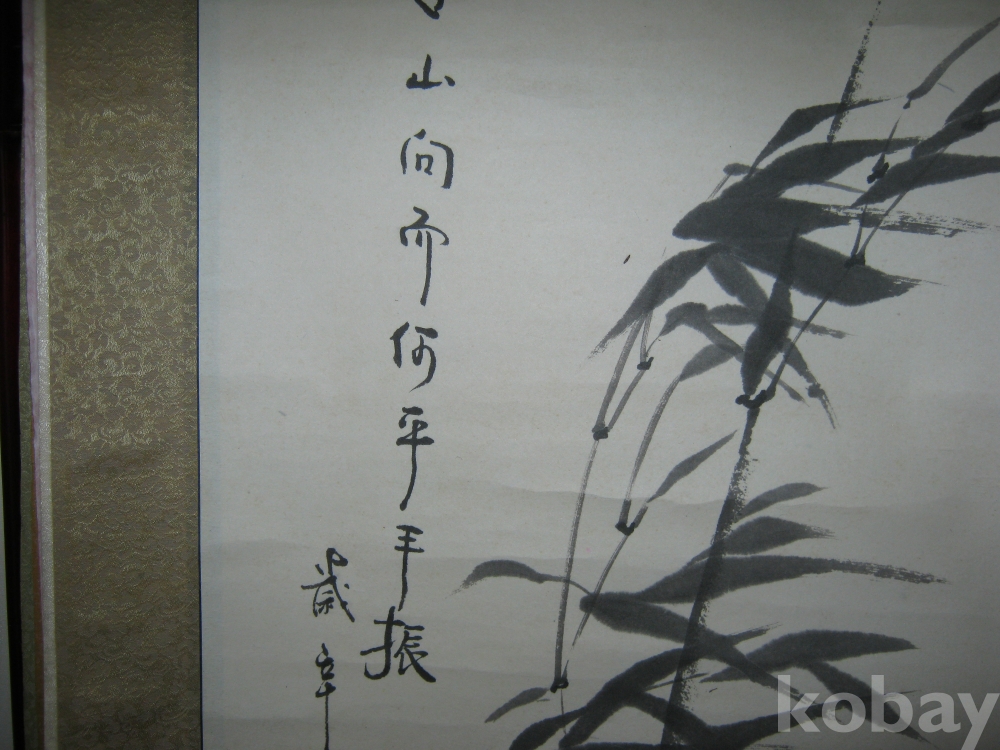 山向而何平手振
歲辛
kobay